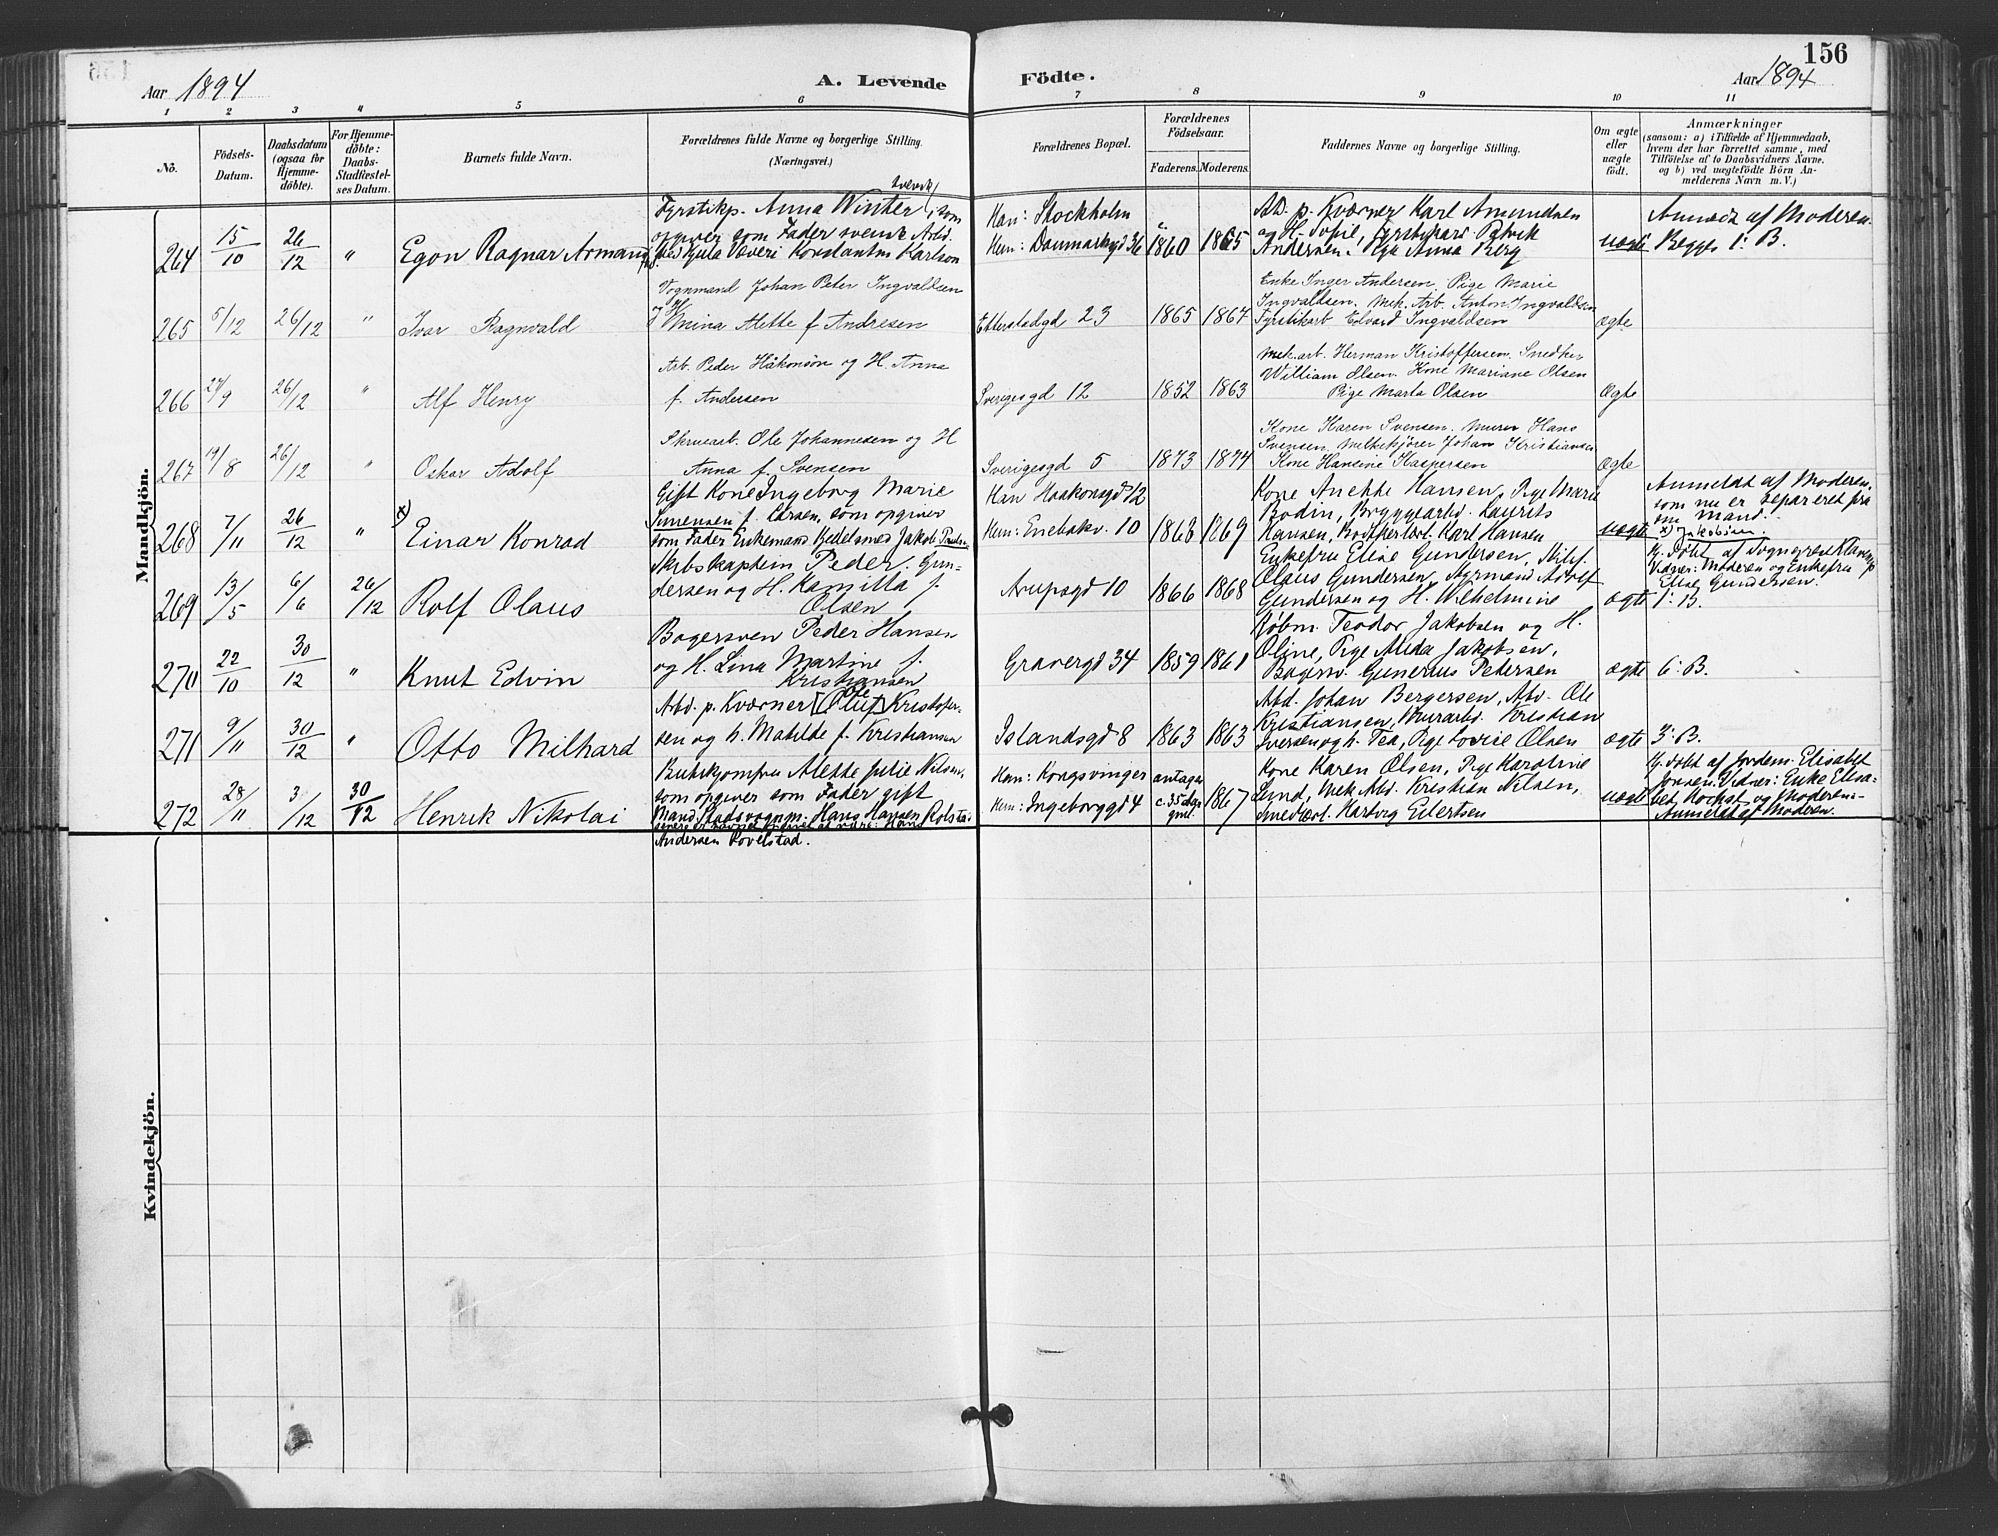 156
Aar 1894
A. Levende
Födte.
Aar 1894
1 2 3 4 5 6 7 8 9 10 11
No.
Födsels-Datum.
Daabsdatum (ogsaa for Hjemme-döbte).
For Hjemme-döbte: Daabs-Stadfæstel-ses Datum.
Barnets fulde Navn.
Forældrenes fulde Navne og borgerlige Stilling.
(Næringsvei.)
Forældrenes Bopæl.
Forældrenes Födselsaar.
Faderens. Moderens.
Faddernes Navne og borgerlige Stilling.
Om ægte eller uægte födt.
Anmærkninger
(saasom: a) i Tilfælde af Hjemmedaab, hvem der har forrettet samme, med Tilföielse af to Daabsvidners Navne. og b) ved uægtefödte Börn An-melderens Navn m. V.)
Mandkjön.
264 15/10 26/12 " Egon Ragnar Armand
svensk
Fyrstikp. Anna Winter, som
opgiver som Fader svensk Arbd.
Konstantin Karlson
Han: Stockholm
Hun: Danmarksgd 36
1860 1865
Arb. p. Kværner Karl Amundsen
og H. Sofie, Fyrstikarb. Patrik
Andersen. Pige Anna Berg
uægte
Anmeldt af Moderen.
Begges 1: B.
265 5/12 26/12 " Ivar Ragnvald
Vognmand Johan Peter Ingvaldsen
og H. Mina Alette f Andresen
Etterstadgd 23
1865 1864
Enke Inger Andersen, Pige Marie
Ingvaldsen. Mek. Arb. Anton Ingvaldsen
Fyrstikarb Edvard Ingvaldsen
ægte
266 24/9 26/12 " Alf Henry
Arb. Peder Håkonsön og H. Anna
f. Andersen
Sverigesgd 12
1852 1863
Mek. arb. Herman Kristoffersen. Snedker
William Olsen. Kone Mariane Olsen
Pige Marta Olsen
Ægte
267 19/8 26/12 " Oskar Adolf
Skruearb. Ole Johannesen og H
Anna f. Svensen
Sverigesgd 5
1873 1874
Kone Karen Svensen. Murer Hans
Svensen. Melkekjörer Johan Kristiansen
Kone Hansine Kaspersen
Ægte
268 7/11 26/12 " x) Einar Konrad
Gift Kone Ingeborg Marie
Simensen f. Larsen, som opgiver
som Fader Enkemand Kjedelsmed Jakob
Han Haakonsgd 12
Hun: Enebakv. 10
1863 1869
Kone Anette Hansen, Pige Marie
Bodin, Bryggearbd. Laurits
Hansen, Karl Hansen
uægte
Anmeldt af Moderen,
som nu er separeret fra
sin Mand.
x) Jakobsen.
269 13/5 6/6 26/12 Rolf Olaus
Skibskaptein Peder Gun-
dersen og H. Kamilla f.
Olsen
Arupsgd 10
1866 1868
Enkefru Elise Gundersen,
Olaus Gundersen, Styrmand Adolf
Gundersen og H. Vilhelmine
ægte
Hj. döbt af Sognepræst Klaveness
Vidner: Moderen og Enkefru
Elise Gundersen.
1: B.
270 22/10 30/12 " Knut Edvin
Bagersven Peder Hansen
og H. Lina Martine f.
Kristiansen
Gravergd 34
1859 1861
Kjöbm. Teodor Jakobsen og H.
Oline, Pige Alida Jakobsen,
Bagersv. Gunerius Pedersen
ægte
6: B.
271 9/11 30/12 " Otto Milhard
Arbd. p. Kværner [Oluf] Ole Kristofer-
sen og h. Matilde f. Kristiansen
Islandsgd 8
1863 1863
Arbd. Johan Bergersen, Arb. Ole
Kristiansen, Murarbd. Kristian
Iversen og h. Tea, Pige Lovise Olsen
ægte
3: B.
272 28/11 3/12 30/12 Henrik Nikolai
Butikjomfru Alette Julie Nilsen,
som opgiver som Fader gift
Mand Stadsvognm. Hans Hansen Rolstad
Andersen Rovelstad.
Han: Kongsvinger
Hun: Ingeborggd 4
antages
c. 35 Aar
gml.
1867
Kone Karen Olsen, Pige Karoline
Lund, Mek Arbd. Kristian Nilsen,
Hartvig Eilertsen
uægte
Hj. döbt af Jordem. Elisabet
Jensen. Vidner: Enke Elisa-
bet og Moderen.
Anmeldt af Moderen.
Kvindekjön.